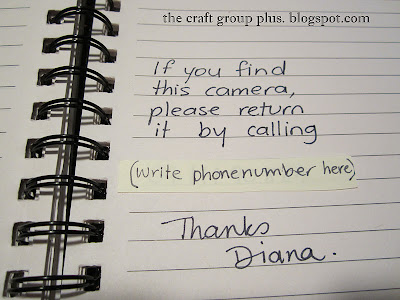 the craft group plus. blogspot.com
If you find
this camera,
please return
it by calling
(write phonenumber here)
Thanks
Diana.